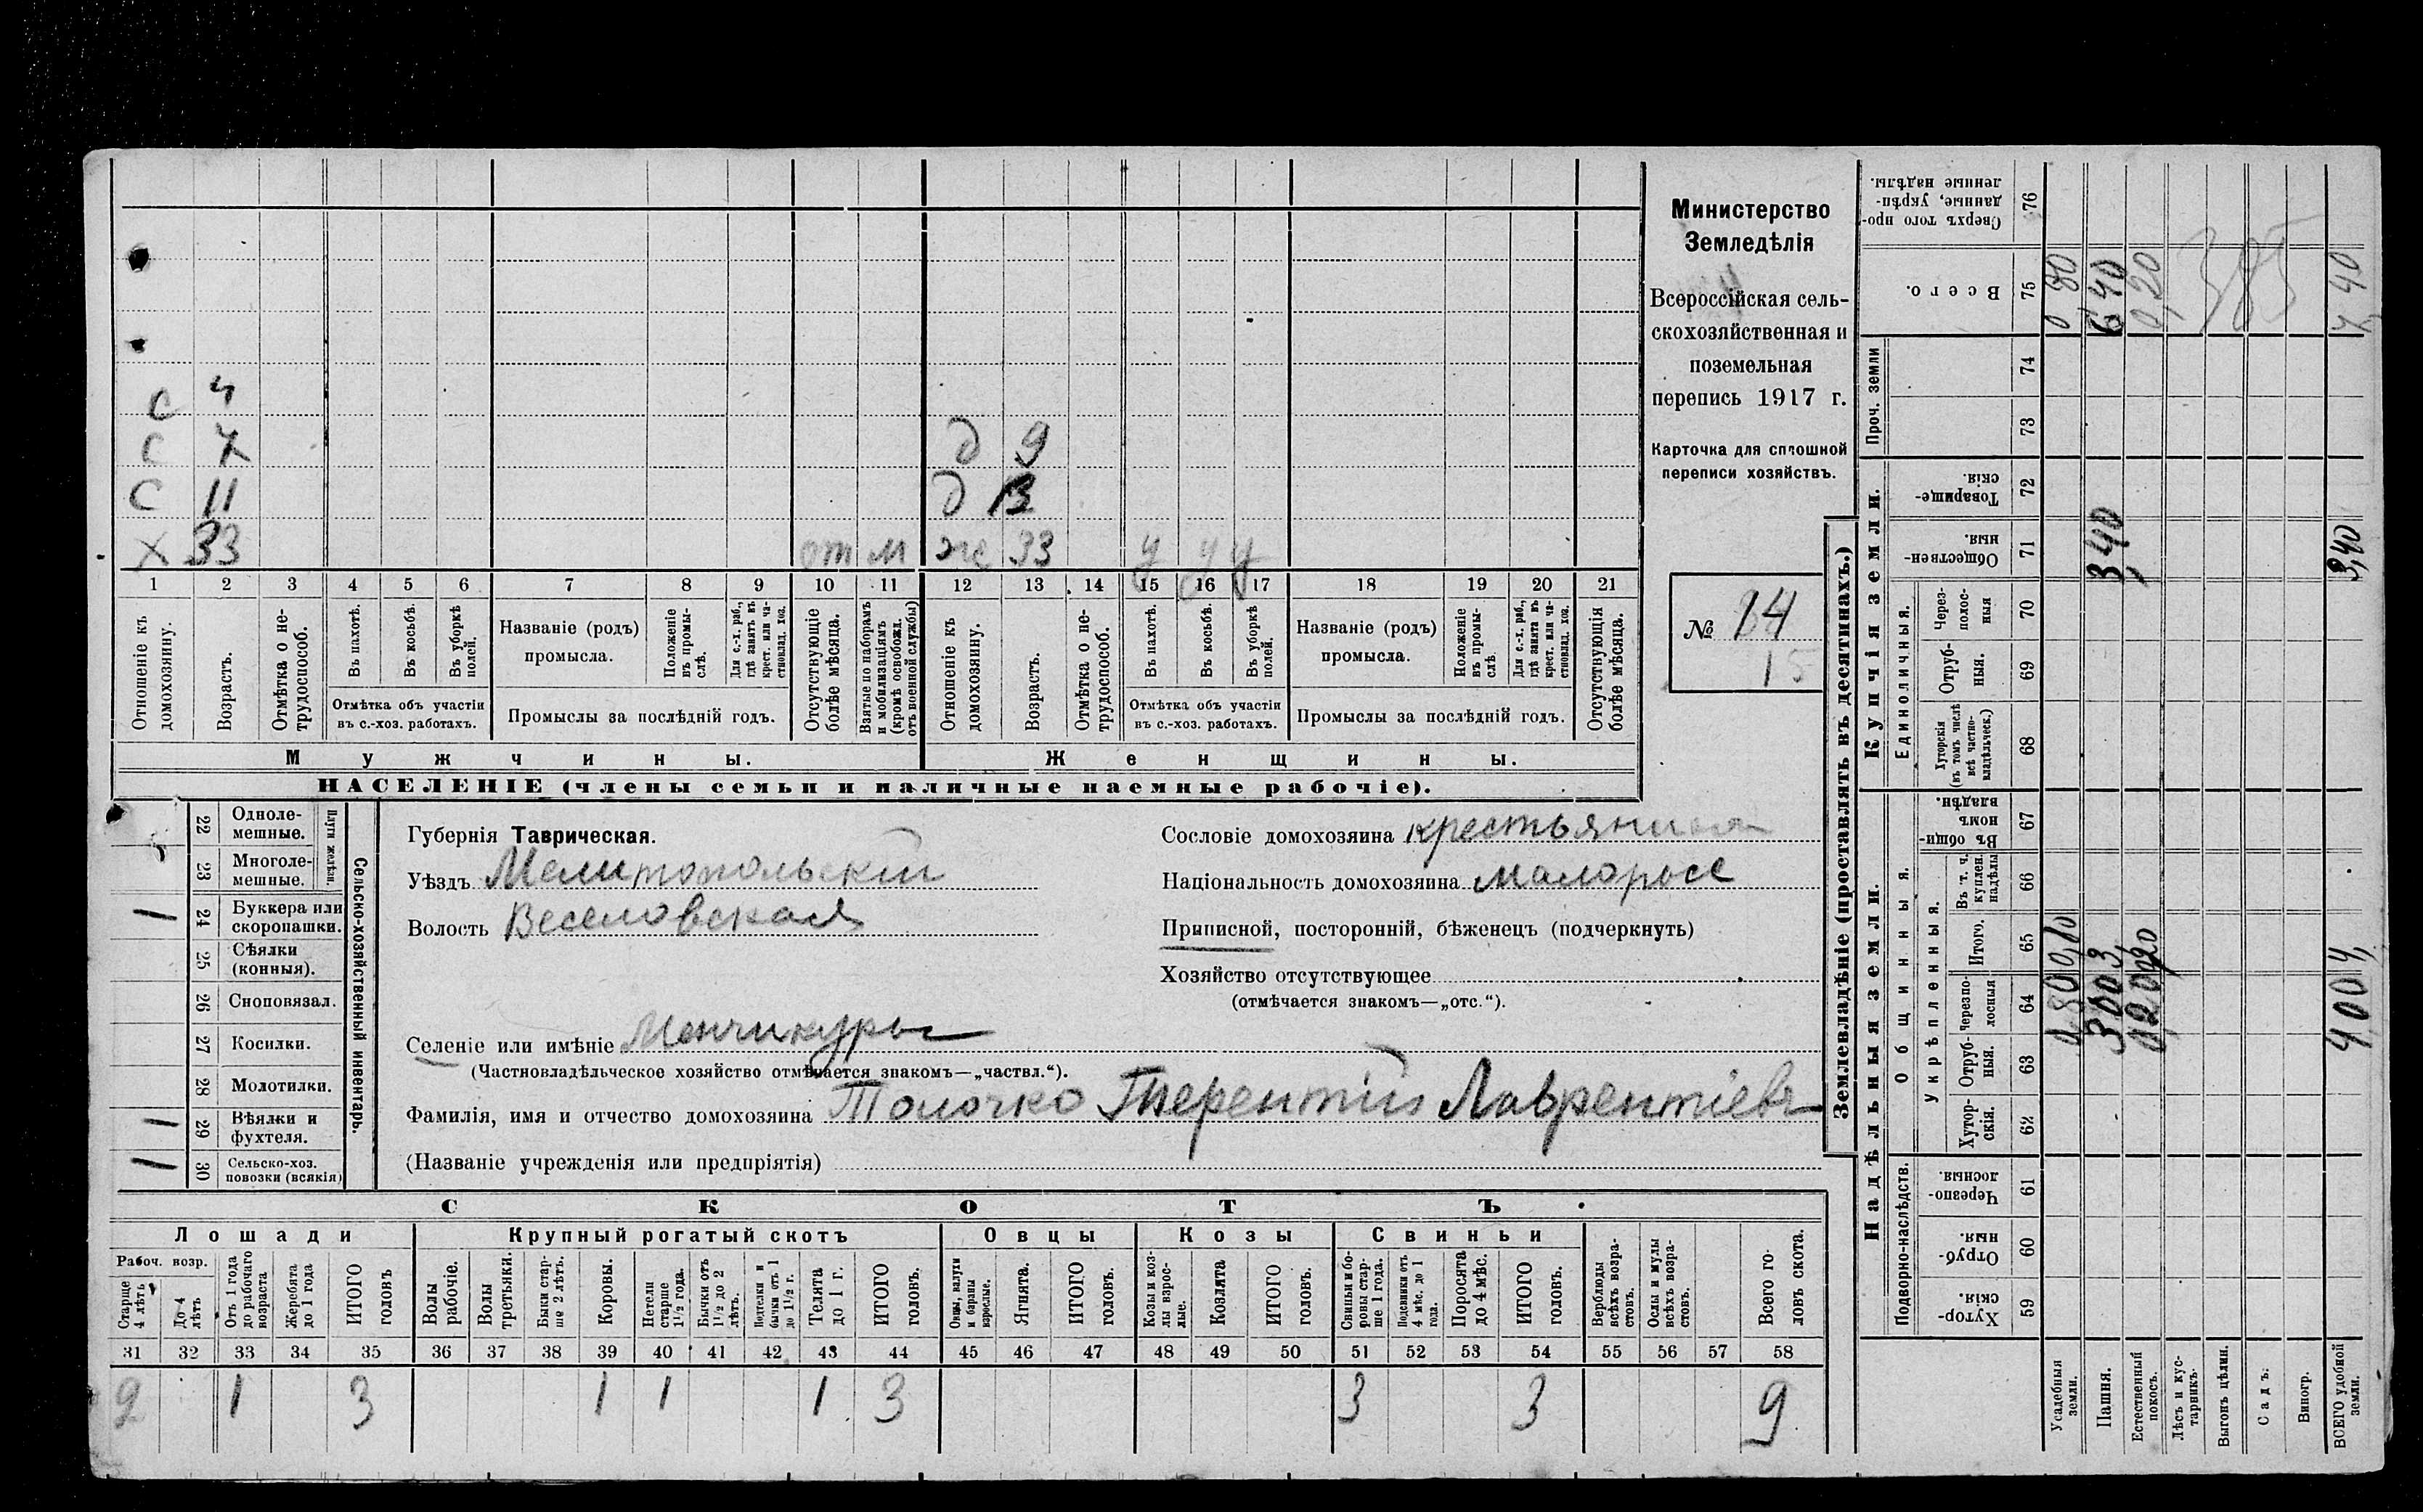 с 4
с 7 д 9
с 11 д 13
х 33 от м же 33 у у у
1 2 3 4 5 6 7 8 9 10 11 12 13 14 15 16 17 18 19 20 21
Отношеніе къ домохозяину.
Возрастъ.
Отмѣтка о нетрудоспособ.
Въ пахотѣ.
Въ косьбѣ.
Въ уборкѣ полей.
Отмѣтка объ участіи
въ с.-хоз. работахъ.
Названіе (родъ)
промысла.
Положеніе въ промыслѣ.
Для с.-х. раб., гдѣ занятъ въ крест. или частновлад. хоз.
Промыслы за послѣдній годъ.
Отсутствующіе болѣе мѣсяца.
Взятые по наборамъ и мобилизаціямъ (кромѣ освобожд. отъ военной службы)
Отношеніе къ домохозяину.
Возрастъ.
Отмѣтка о нетрудоспособ.
Въ пахотѣ.
Въ косьбѣ.
Въ уборкѣ полей.
Отмѣтка объ участіи
въ с.-хоз. работахъ.
Названіе (родъ)
промысла.
Положеніе въ промыслѣ.
Для с.-х. раб., гдѣ занята въ крест. или частновлад. хоз.
Промыслы за послѣдній годъ.
Отсутствующія болѣе мѣсяца.
Мужчины.
Женщины.
НАСЕЛЕНІЕ (члены семьи и наличные наемные рабочіе).
Министерство
Земледѣлія
Всероссійская сель-
скохозяйственная и
поземельная
перепись 1917 г.
Карточка для сплошной
переписи хозяйствъ.
№ 14
15
22 Одноле-
мешные.
23 Многоле-
мешные.
Плуги желѣзн.
1 24 Буккера или
скоропашки.
25 Сѣялки
(конныя).
26 Сноповязал.
27 Косилки.
28 Молотилки.
1 29 Вѣялки и
фухтеля.
1 30 Сельско-хоз.
повозки (всякія)
Сельско-хозяйственный инвентарь.
Губернія Таврическая.
Уѣздъ Мелитопольскій
Волость Веселовская
Сословіе домохозяина крестьянинъ
Національность домохозяина малороссъ
Приписной, посторонній, бѣженецъ (подчеркнуть)
Хозяйство отсутствующее
(отмѣчается знакомъ—„отс.“).
Селеніе или имѣніе Менчикуры
(Частновладѣльческое хозяйство отмѣчается знакомъ—„частвл.“).
Фамилія, имя и отчество домохозяина Толочко Терентій Лаврентіевъ
(Названіе учрежденія или предпріятія)
СКОТЪ
Лошади Крупный рогатый скотъ Овцы Козы Свиньи
Рабоч. возр.
Старше 4 лѣтъ
До 4 лѣтъ
Отъ 1 года до рабочаго возраста
Жеребята до 1 года
ИТОГО головъ
Волы рабочіе.
Волы третьяки.
Быки старше 2 лѣтъ.
Коровы.
Нетели старше 1½ года.
Бычки отъ 1½ до 2 лѣтъ.
Подтелки и бычки отъ 1 до 1½ г.
Телята до 1 г.
ИТОГО головъ.
Овцы, валухи и бараны взрослые.
Ягнята.
ИТОГО головъ.
Козы и козлы взрослые.
Козлята
ИТОГО головъ.
Свиньи и боровы старше 1 года.
Подсвинки отъ 4 мѣс. до 1 года.
Поросята до 4 мѣс.
ИТОГО головъ.
Верблюды всѣхъ возрастовъ.
Ослы и мулы всѣхъ возрастовъ.
Всего головъ скота.
31 32 33 34 35 36 37 38 39 40 41 42 43 44 45 46 47 48 49 50 51 52 53 54 55 56 57 58
2 1 3 1 1 1 3 3 3 9
Землевладѣніе (проставлять въ десятинахъ.)
Надѣльныя земли.
Купчія земли.
Проч. земли
Подворно-наслѣдств.
Общинныя.
Укрѣпленныя.
Единоличныя.
Хуторскія. 59
Отрубныя. 60
Черезполосныя. 61
Хуторскія. 62
Отрубныя. 63
Черезполосныя 64
Итого. 65
Въ т. ч. куплен. надѣлы 66
Въ общинномъ владѣн. 67
Хуторскія (въ томъ числѣ всѣ частновладѣльческ.) 68
Отрубныя. 69
Черезполосныя 70
Общественныя. 71
Товарищескія. 72
73
74
Всего. 75
Сверхъ того проданные, укрѣпленные надѣлы. 76
Усадебныя земли. 0,80 0 80
Пашня. 3 00 3, 3,40 6,40
Естественный покосъ. 0,20 0,20 0,20
Лѣсъ и кустарникъ.
Выгонъ цѣлин.
Садъ.
Виногр.
ВСЕГО удобной земли. 4 00 4, 3,40 7,40
385